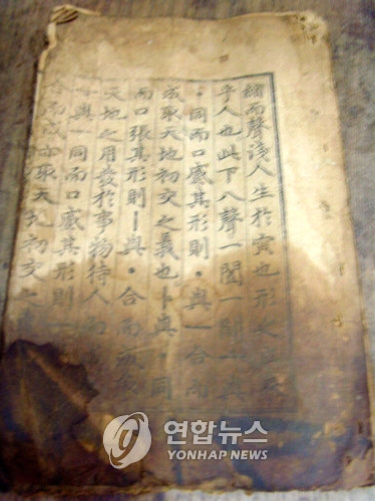 縮而聲淺人生於寅也形之立象
乎人也此下八聲一闔一闢ㅗ與
ㆍ同而口蹙其形則ㆍ與ㅡ合而
成取天地初交之義也ㅏ與ㆍ同
而口張其形則ㅣ與ㆍ合而成
天地之用發於事物待人而成
ㅜ與ㅡ同而口蹙其形則ㅡ
合而成亦取天地初交之義
연합뉴스
YONHAP NEWS